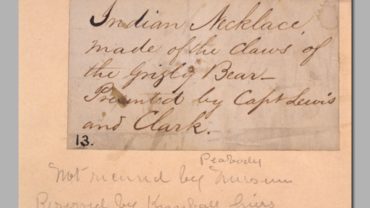 Indian Necklace,
made of the claws of
the Grizly Bear—
Presented by Capt Lewis
and Clark.
13.
Peabody
Not received by Museum
by